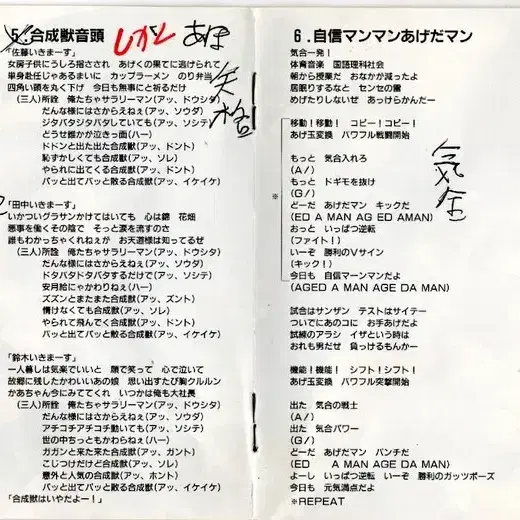 5.合成獣音頭
しかと
あほ
「佐藤いきまーす」
女房子供にうしろ指さされ　あげくの果てに逃げられて
単身赴任じゃあるまいに　カップラーメン　のり弁当
四角い頭を丸く下げ　今日も無事にと祈るだけ
(三人)所詮　俺たちゃサラリーマン(アッ、ドウシタ)
だんな様にはさからえねぇ(アッ、ソウダ)
ジタバタジタバタしていても(アッ、ソシテ)
どうせ誰かが泣きっ面(ハー)
ドドンと出た出た合成獣(アッ、ドント)
恥ずかしくても合成獣(アッ、ソレ)
やられに出てくる合成獣(アッ、ドント)
パッと出てパッと散る合成獣(アッ、イケイケ)
「田中いきまーす」
いかついグラサンかけてはいても　心は錦　花畑
悪事を働くその陰で　そっと涙を流すのさ
誰もわかっちゃくれねぇが　お天道様は知ってるぜ
(三人)所詮　俺たちゃサラリーマン(アッ、ドウシタ)
だんな様にはさからえねぇ(アッ、ソウダ)
ドタバタドタバタするだけで(アッ、ソシテ)
安月給にゃかわりねぇ(ハー)
ズズンとまたまた合成獣(アッ、ズント)
情けなくても合成獣(アッ、ソレ)
やられて飛んでく合成獣(アッ、ドント)
パッと出てパッと散る合成獣(アッ、イケイケ)
「鈴木いきまーす」
一人暮しは気楽でいいと　顔で笑って　心で泣いて
故郷に残したかわいいあの娘　思い出すたび胸クルルン
かあちゃん今にみててくれ　いつかは俺も大社長
(三人)所詮　俺たちゃサラリーマン(アッ、ドウシタ)
だんな様にはさからえねぇ(アッ、ソウダ)
アチコチアチコチ動いても(アッ、ソシテ)
世の中ちっともかわらねぇ(ハー)
ガガンと来た来た合成獣(アッ、ガント)
こじつけだけど合成獣(アッ、ソレ)
意外と人気の合成獣(アッ、ホント)
パッと出てパッと散る合成獣(アッ、イケイケ)
「合成獣はいやだよー！」
6.自信マンマンあげだマン
気合一発！
体育音楽　国語理科社会
朝から授業だ　おなかが減ったよ
居眠りするなと　センセの雷
めげたりしないぜ　あっけらかんだー
移動！移動！　コピー！コピー！
あげ玉変換　パワフル戦闘開始
もっと　気合入れろ
(A/)
もっと　ドギモを抜け
(G/)
どーだ　あげだマン　キックだ
(ED A MAN AG ED AMAN)
おっと　いっぱつ逆転
(ファイト！)
いーぞ　勝利のVサイン
(キック！)
今日も　自信マーンマンだよ
(AGED A MAN AGE DA MAN)
※
気合
試合はサンザン　テストはサイテー
ついでにあのコに　お手あげだよ
試練のアラシ　イザという時は
おれも男だぜ　負っけるもんかー
機能！機能！　シフト！シフト！
あげ玉変換　パワフル突撃開始
出た　気合の戦士
(A/)
出た　気合パワー
(G/)
どーだ　あげだマン　パンチだ
(ED A MAN AGE DA MAN)
よーし　いっぱつ逆転　いーぞ　勝利のガッツポーズ
今日も　元気満点だよ
※REPEAT